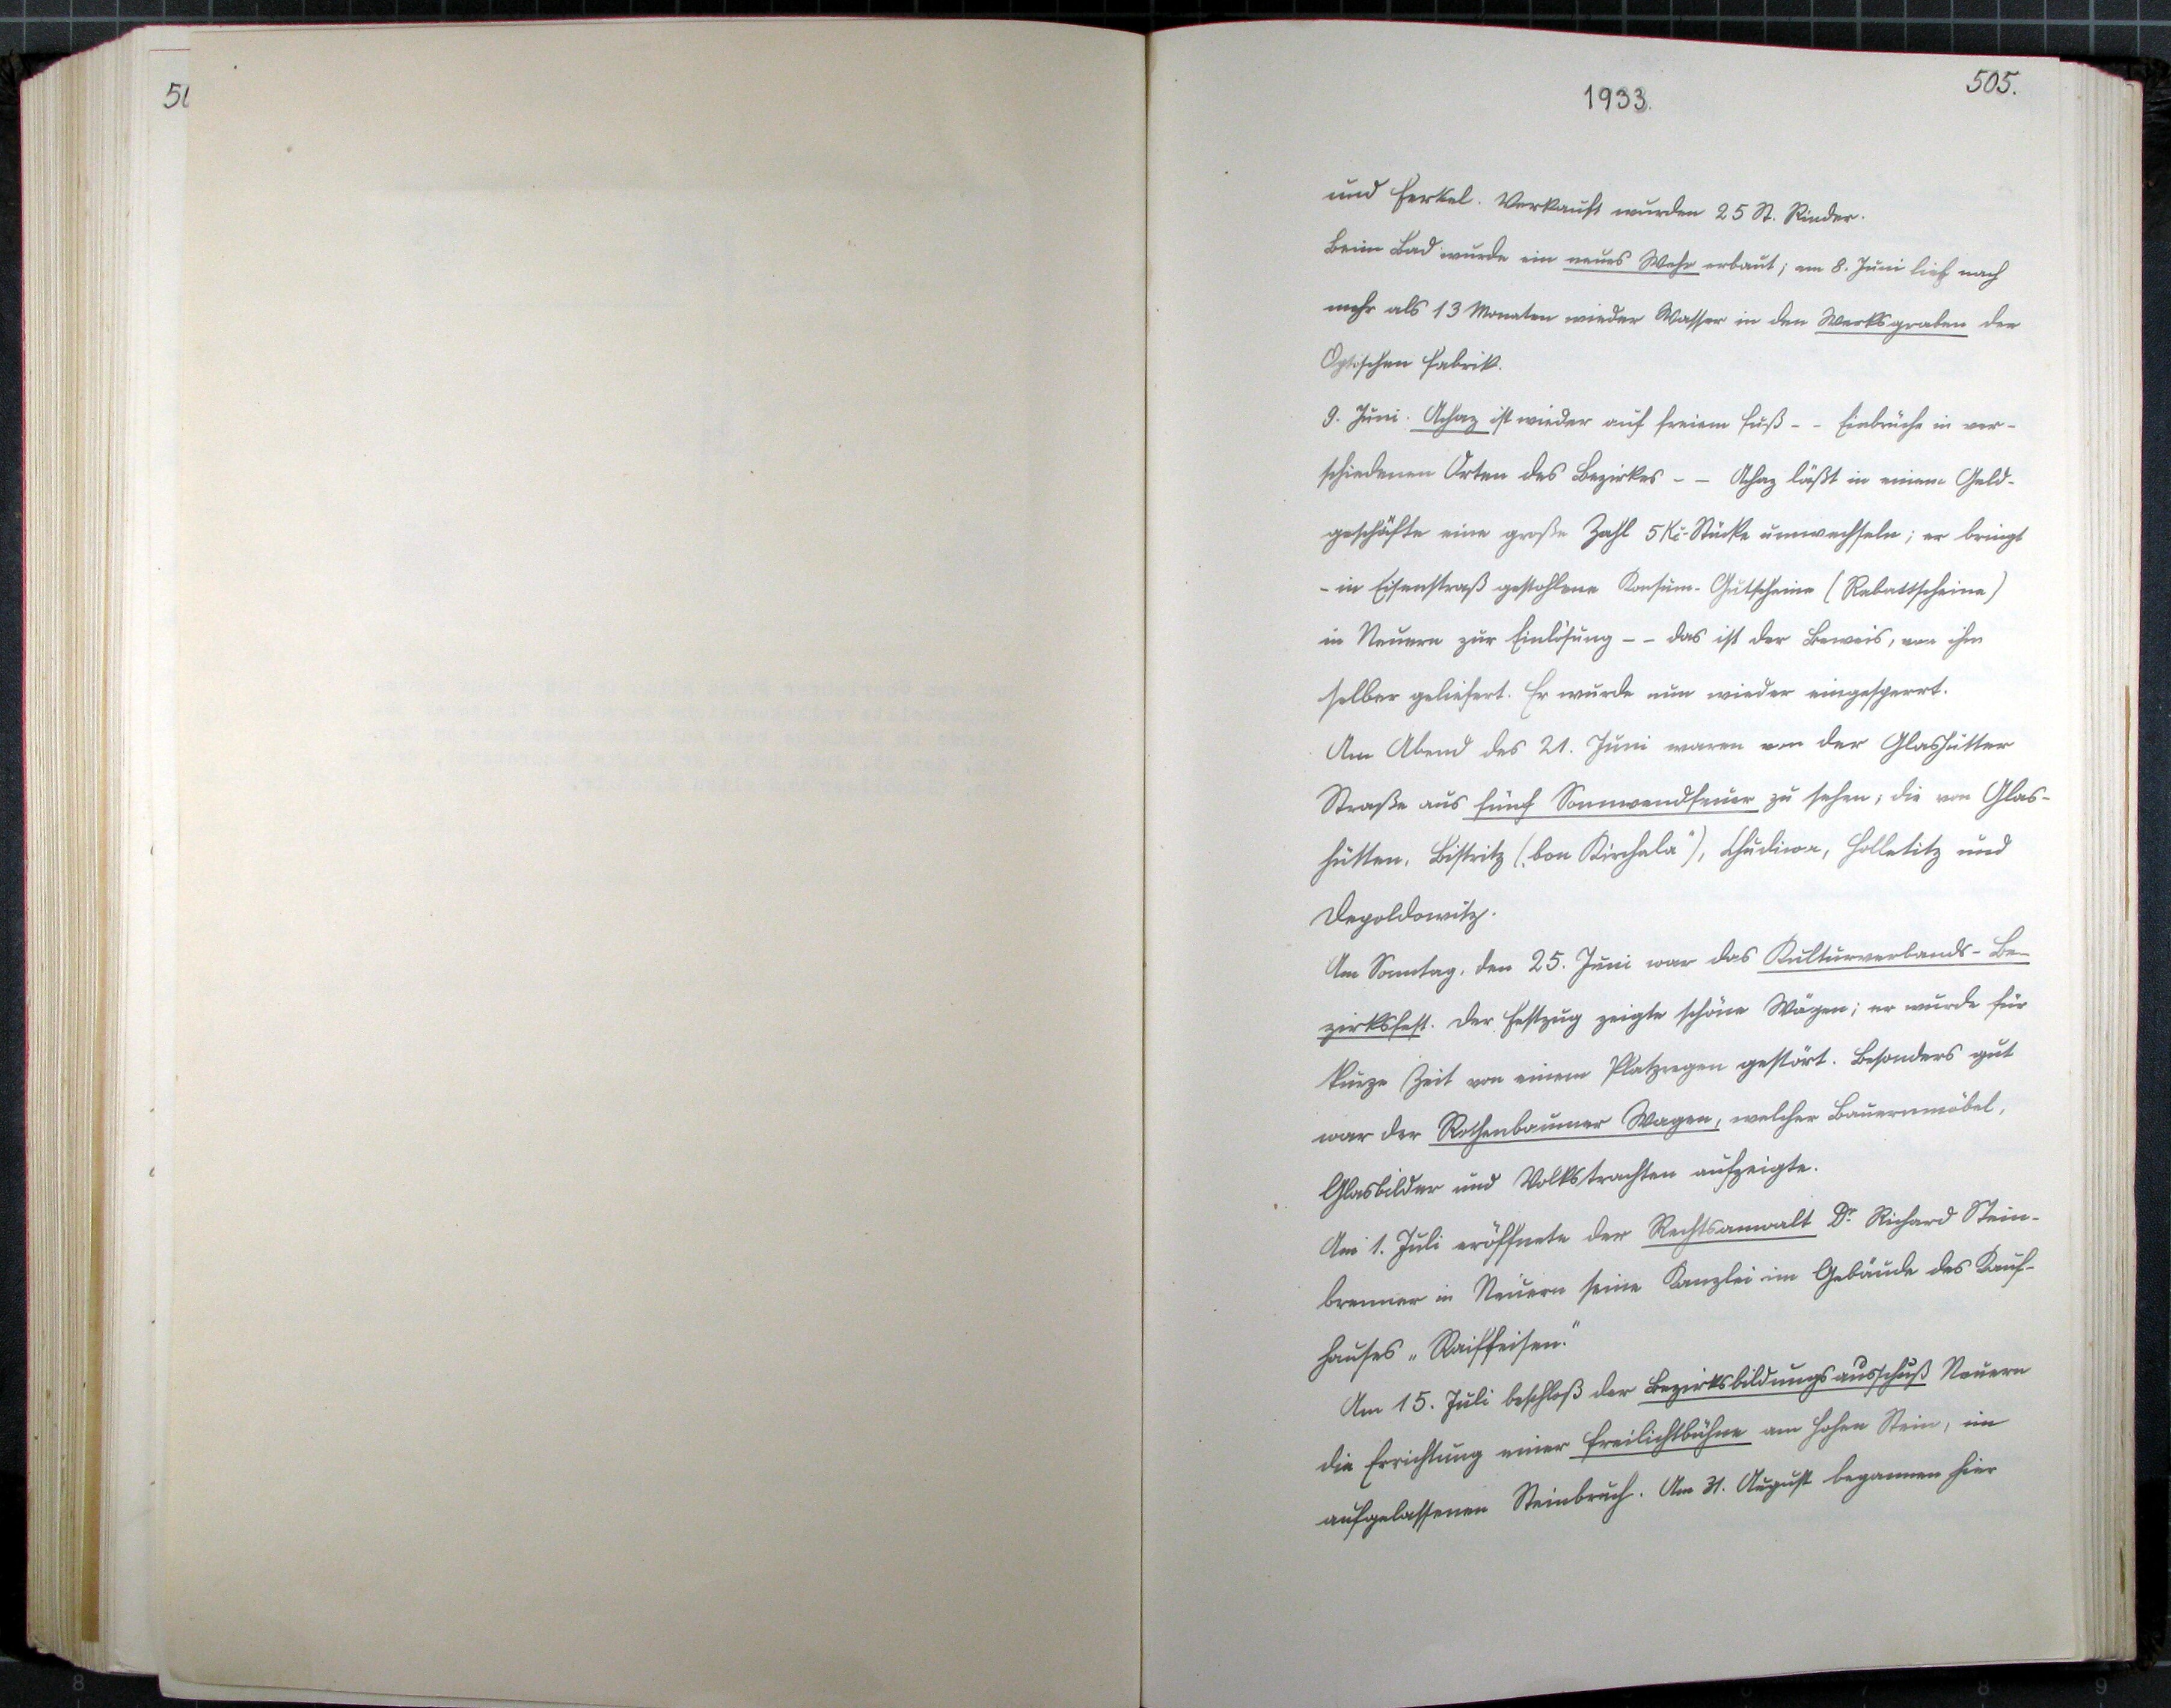 50
1933.
505.
und Ferkel. Verkauft wurden 25 St. Rinder.
Beim Bad wurde ein neues Wehr erbaut; am 8. Juni lief nach
mehr als 13 Monaten wieder Wasser in den Werksgraben der
Optischen Fabrik.
9. Juni. Achaz ist wieder auf freiem Fuß - - Einbrüche in ver-
schiedenen Orten des Bezirkes - - Achaz läßt in einem Geld-
geschäfte eine große Zahl 5 Kč-Stücke umwechseln; er bringt
- in Eisenstraß gestohlene Konsum-Gutscheine (Rabattscheine)
in Neuern zur Einlösung - - das ist der Beweis, von ihm
selber geliefert. Er wurde nun wieder eingesperrt.
Am Abend des 21. Juni waren von der Glashütter
Straße aus fünf Sonnwendfeuer zu sehen; die von Glas-
hütten, Bistritz („bon Kirchala"), Chudiwa, Holletitz und
Depoldowitz.
Am Sonntag, den 25. Juni war das Kulturverbands-Be-
zirksfest. Der Festzug zeigte schöne Wägen; er wurde für
kurze Zeit von einem Platzregen gestört. Besonders gut
war der Rothenbaumer Wagen, welcher Bauernmöbel,
Glasbilder und Volkstrachten aufzeigte.
Am 1. Juli eröffnete der Rechtsanwalt Dr. Richard Stein-
brenner in Neuern seine Kanzlei im Gebäude des Kauf-
hauses „Raiffeisen."
Am 15. Juli beschloß der Bezirksbildungsausschuß Neuern
die Errichtung einer Freilichtbühne am Hohen Stein, im
aufgelassenen Steinbruch. Am 31. August begannen hier